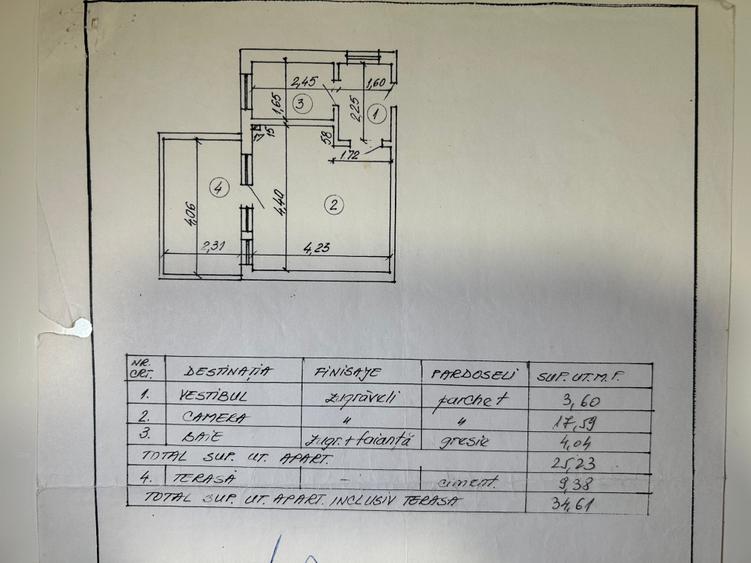 2,45
1,60
1,65
3
2,25
1
15
58
1,72
4
4,06
4,40
2
2,31
4,23
NR. CRT. DESTINAȚIA FINISAJE PARDOSELI SUP. UT. M.P.
1. VESTIBUL zugrăveli parchet 3,60
2. CAMERA " " 17,59
3. BAIE zugr. + faianță gresie 4,04
TOTAL SUP. UT. APART. 25,23
4. TERASĂ - ciment. 9,38
TOTAL SUP. UT. APART. INCLUSIV TERASA 34,61